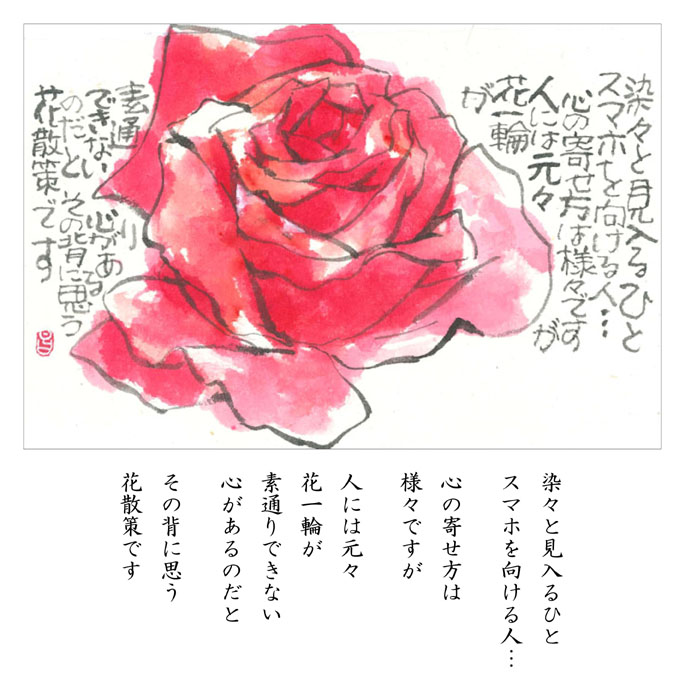 染々と見入るひと
スマホを向ける人…
心の寄せ方は様々ですが
人には元々
花一輪
が
素通り
できない 心がある
のだと その背に思う
花散策です
染々と見入るひと
スマホを向ける人…
心の寄せ方は
様々ですが
人には元々
花一輪が
素通りできない
心があるのだと
その背に思う
花散策です